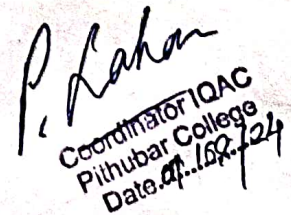 P. Lahon
Coordinator IQAC
Pithubar College
Date.